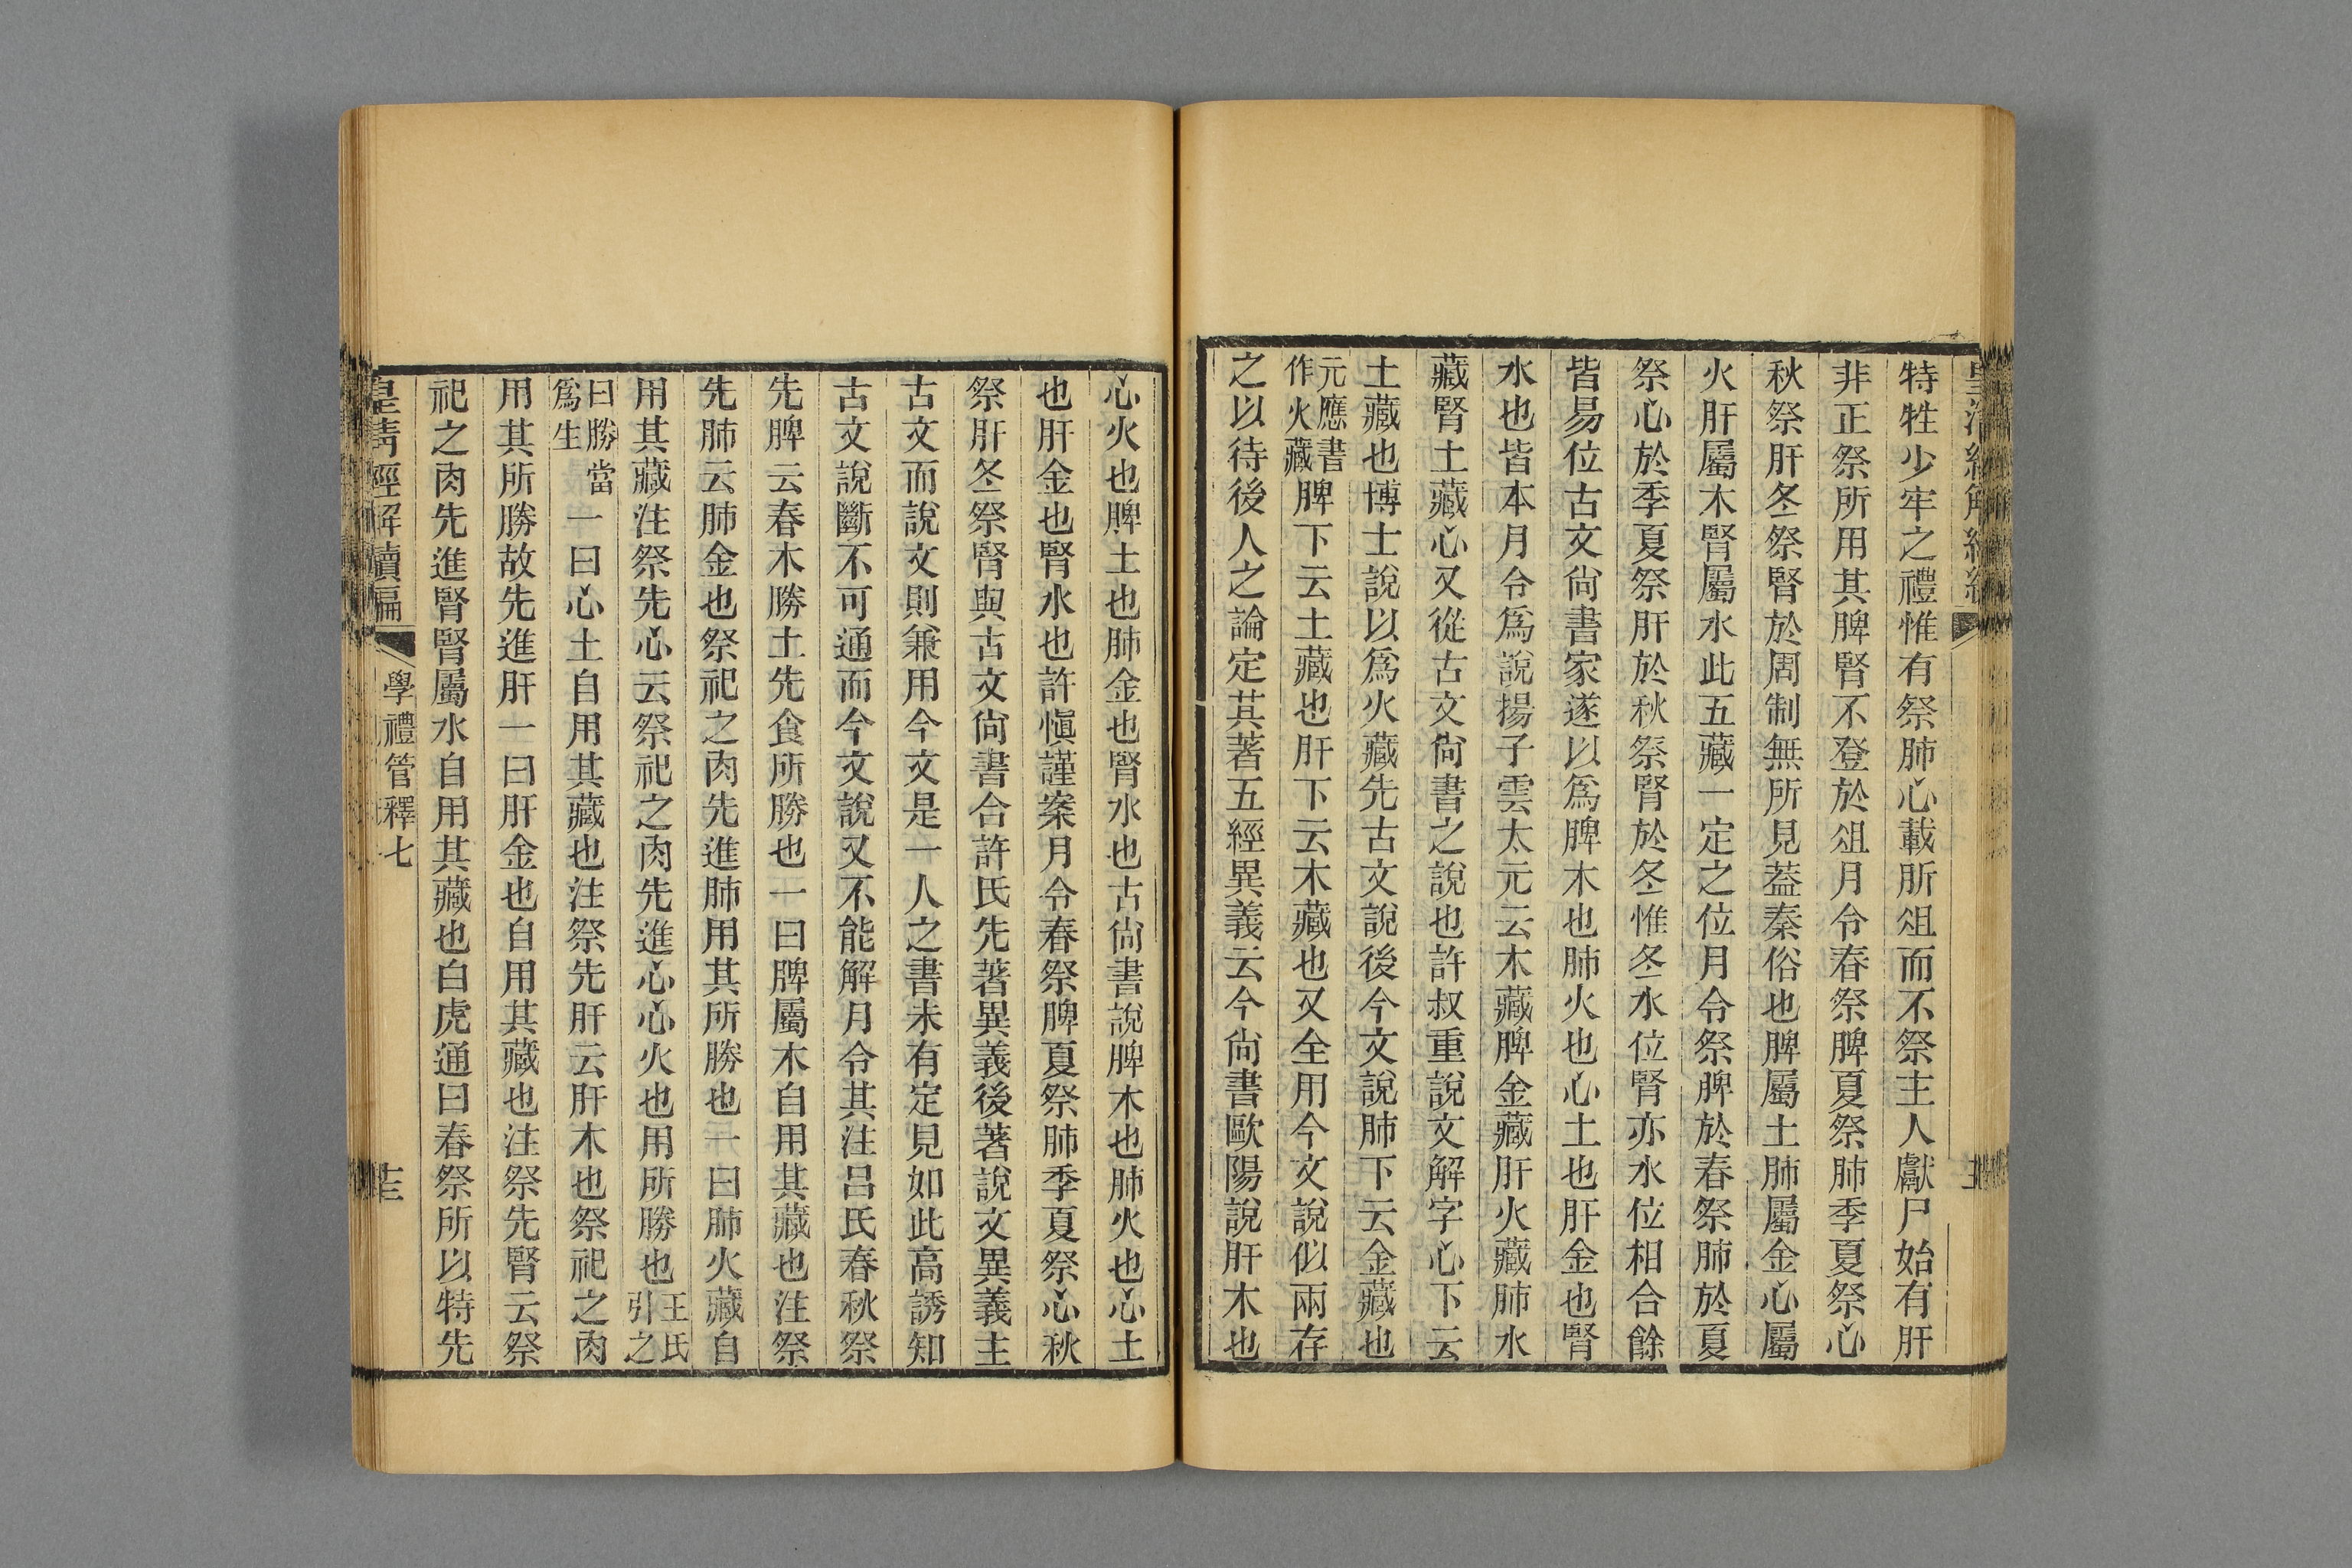 特牲少牢之禮惟有祭肺心載肵俎而不祭主人獻尸始有肝
非正祭所用其脾腎不登於俎月令春祭脾夏祭肺季夏祭心
秋祭肝冬祭腎於周制無所見葢秦俗也脾屬土肺屬金心屬
火肝屬木腎屬水此五藏一定之位月令祭脾於春祭肺於夏
祭心於季夏祭肝於秋祭腎於冬惟冬水位腎亦水位相合餘
皆易位古文尙書家遂以爲脾木也肺火也心土也肝金也腎
水也皆本月令爲說揚子雲太元云木藏脾金藏肝火藏肺水
藏腎土藏心又從古文尙書之說也許叔重說文解字心下云
土藏也博士說以爲火藏先古文說後今文說肺下云金藏也
元應書作火藏脾下云土藏也肝下云木藏也又全用今文說似兩存
之以待後人之論定其著五經異義云今尙書歐陽說肝木也
心火也脾土也肺金也腎水也古尙書說脾木也肺火也心土
也肝金也腎水也許愼謹案月令春祭脾夏祭肺季夏祭心秋
祭肝冬祭腎與古文尙書合許氏先著異義後著說文異義主
古文而說文則兼用今文是一人之書未有定見如此高誘知
古文說斷不可通而今文說又不能解月令其注呂氏春秋祭
先脾云春木勝土先食所勝也一曰脾屬木自用其藏也注祭
先肺云肺金也祭祀之肉先進肺用其所勝也一曰肺火藏自
用其藏注祭先心云祭祀之肉先進心心火也用所勝也王氏引之
曰勝當爲生一曰心土自用其藏也注祭先肝云肝木也祭祀之肉
用其所勝故先進肝一曰肝金也自用其藏也注祭先腎云祭
祀之肉先進腎腎屬水自用其藏也白虎通曰春祭所以特先
皇清經解續編
學禮管釋七